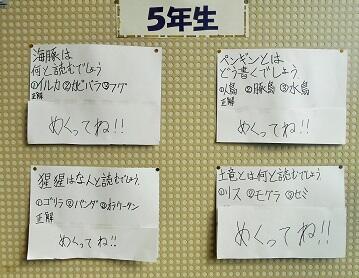 5年生
海豚は
何と読むでしょう
①イルカ②カピバラ③フグ
正解
めくってね!!
ペンギンとは
どう書くでしょう
①人鳥 ②豚鳥 ③水鳥
正解
めくってね!!
猩猩はなんと読むでしょう。
①ゴリラ②パンダ③オラウータン
正解
めくってね!!
土竜とは何と読むでしょう
①リス ②モグラ ③セミ
めくってね!!